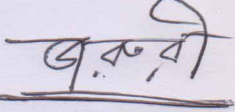 জরুরী